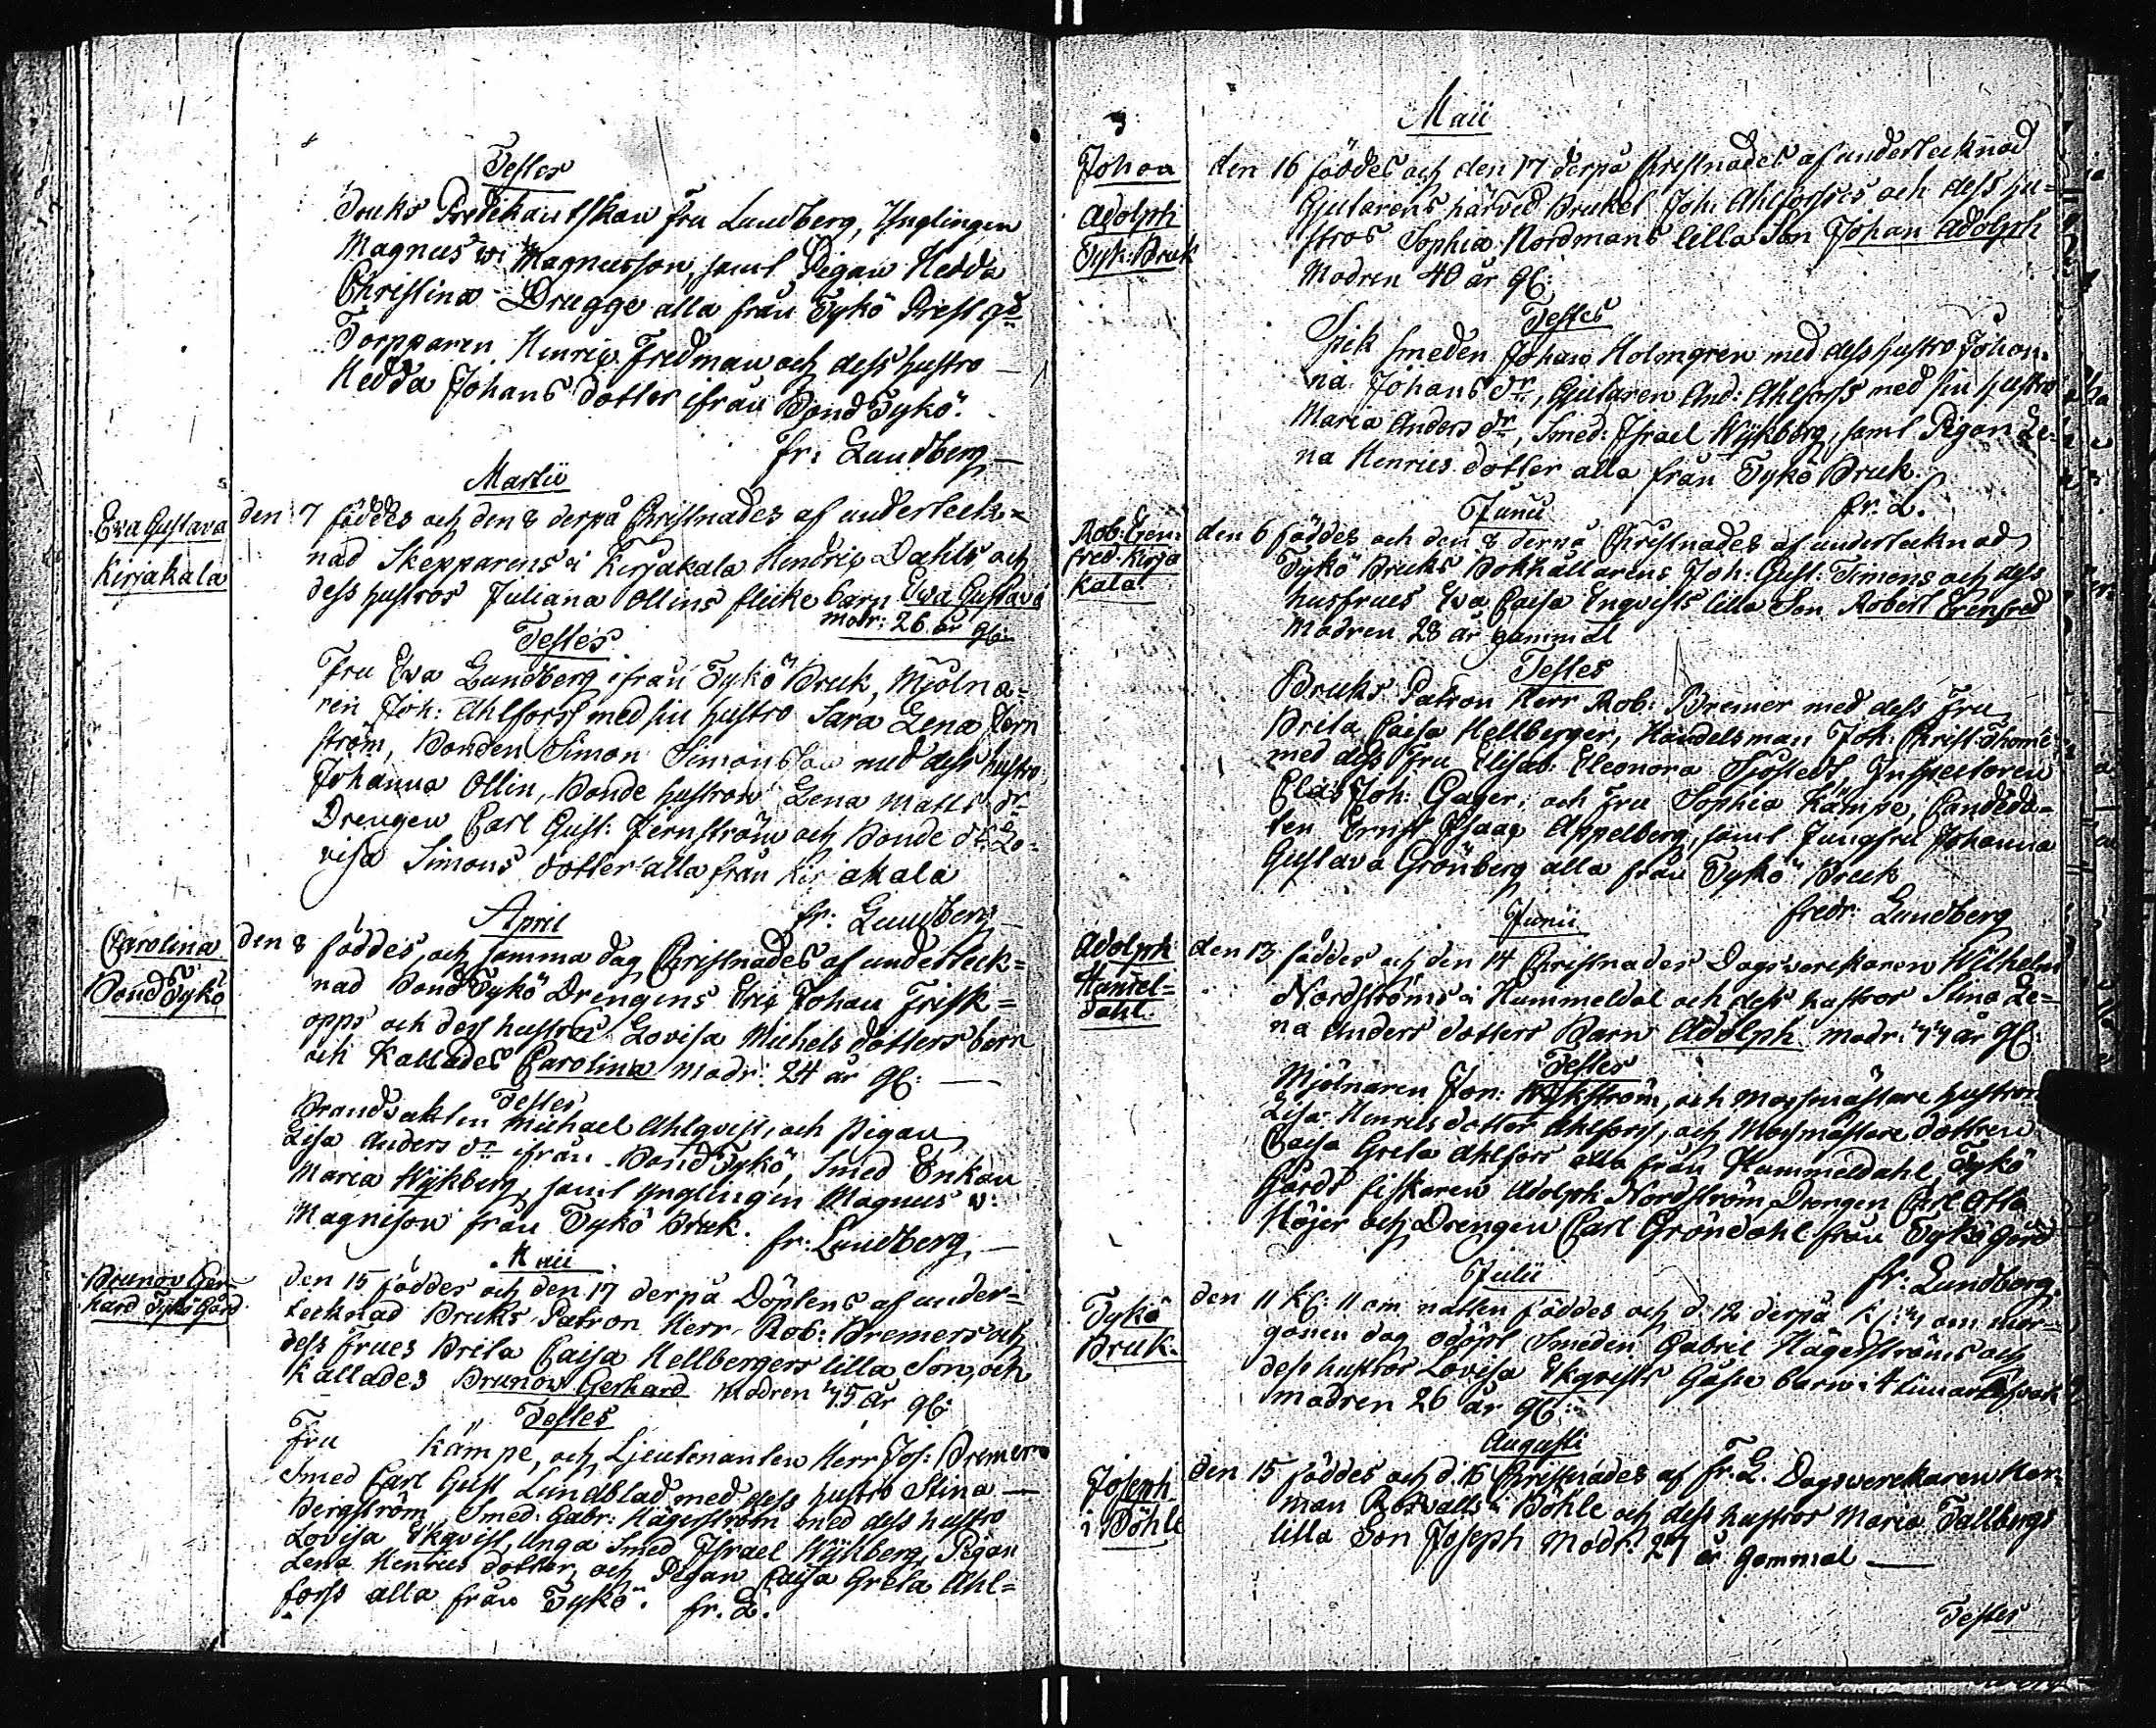 Testes
Bruks Predikantskan Fru Lundberg, Ynglingen
Magnus W: Magnusson, saml Pigan Hedda
Christina Drugge alla från Tykö Prest gd
Torpparen Henric Fredman och dess hustro
Hedda Johans dotter ifrån Bond Tykö.
fr: Lundberg
Martii
Eva Gustava
Kirjakala
den 7 föddes och den 8 derpå Christnades af underteck=
nad Skepparens i Kirjakala Hendric Dahls, och
dess hustros Juliana Ollins flicke barn Eva Gustava
modr: 26 år gl:
Testes
Fru Eva Lundberg ifrån Tykö Bruk, Mjölna=
ren Joh: Ahlforss med sin hustro Sara Lena Jern
ström, Bonden Simon Simonsson med dess hustro
Johanna Ollin, Bonde hustron Lena Matts dr
Drengen Carl Gust: Jernström och Bonde dr Lo=
visa Simons dotter alla från Kirjakala
fr: Lundberg
April
Carolina
Bond Tykö
den 8 föddes, och samma dag Christnades af underteck=
nad Bond Tykö Drengens Eric Johan Frisk=
opps och dess hustros Lovisa Michels dotters barn
och kallades Carolina modr: 24 år gl:
Testes
Brandvakten Michael Ahlqvist, och Pigan
Lisa Anders dr ifrån Bond Tykö, Smed Enkan
Maria Wykberg, saml Ynglingen Magnus W:
Magnison från Tykö Bruk.
fr: Lundberg
Maii
Brunov Ger=
hard Tykö Gård
den 15 föddes och den 17 derpå Döptens af under=
tecknad Bruks Patron Herr Rob: Bremers och
dess Frues Brita Caisa Hellbergers lilla Son, och
kallades Brunow Gerhard Modren 45 år gl:
Testes
Fru Kämpe, och Lieutenanten Herr Jos: Bremer
Smed Carl Gust Lundblad med dess hustro Stina
Bergström Smed: Gabr: Hägerström med dess hustro
Lovisa Ekqvist, Unga Smed Israel Wykberg, Pigan
Lena Henrics dotter, och Pigan Caisa Greta Ahl=
forss alla från Tykö. fr. L.
Maii
Johan
Adolph
Tyk: Bruk
den 16 föddes och den 17 derpå Christnades af undertecknad
Gjutarens härved Bruket Joh: Ahlforsses och dess hu=
stros Sophia Nordmans lilla Son Johan Adolph
Modren 40 år gl:
Testes
Spik Smeden Johan Holmgren med dess hustro Johan=
na Johans dr, Gjutaren And: Ahlforss med sin hustro
Maria Anders dr, Smed: Israel Wykberg, saml Pigan Le=
na Henrics dotter alla från Tykö Bruk.
fr: L.
Junii
Rob: Eren=
fred Kirja
kala
den 6 föddes och den 8 derpå Christnades af undertecknad
Tykö Bruks Bokhållarens Joh: Gust: Simons och dess
husfrues Eva Caisa Enqvists lilla Son Robert Erenfred
Modren 28 år gammal
Testes
Bruks Patron Herr Rob: Bremer med dess Fru
Brita Caisa Hellberger, Handelsman Joh: Christ: Thomé
med dess Fru Elisab: Eleonora Sjöstedt, Inspectoren
Clas Joh: Gager, och Fru Sophia Kämpe, Candida=
ten Ernst Isaac Appelberg, saml Jungfru Johanna
Gustava Grönberg alla från Tykö Bruk
fredr: Lundberg
Junii
Adolph
Hummel=
dahl.
den 13 föddes och den 14 Christnades Dagsverckaren Wilhelm
Nordströms i Hummeldal och dess hustros Stina Le=
na Anders dotters Barn Adolph modr: 44 år gl:
Testes
Mjölnaren Jon: Wykström, och Masmästare hustron
Lisa Henrics dotter Ahlforss, och Masmästare dottren
Caisa Greta Ahlfors alla från Hummeldahl, Tykö
Gårds fiskaren Adolph Nordström Drengen Carl Otto
Höjer och Drengen Carl Gröndahl från Tykö gård
fr: Lundberg
Julii
Tykö
Bruk.
den 11 kl: 11 om natten föddes och d. 12 derpå kl: 4 om mor=
gonen dog odöpt Smeden Gabriel Hägerströms och
dess hustros Lovisa Ekqvists Gosse barn
modren 26 år gl:
Augusti
Joseph
i Böhle
den 15 föddes och d. 16 Christnades af fr. L. Dagsverckaren Her=
man Rosvalls i Böhle och dess hustros Maria Tallbergs
lilla Son Joseph Modr: 27 år gammal
Testes